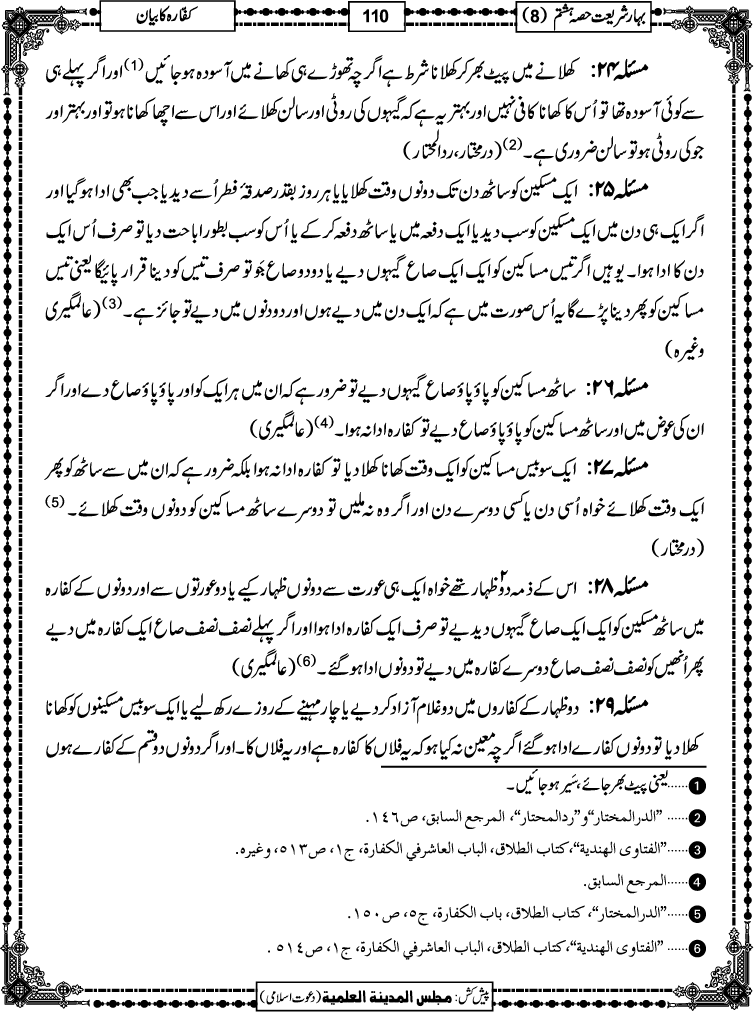 بہارِ شریعت حصہ ہشتم (8)
110
کفارہ کا بیان
مسئلہ ۲۴: کھلانے میں پیٹ بھر کر کھلانا شرط ہے اگرچہ تھوڑے ہی کھانے میں آسودہ ہوجائیں (1) اور اگر پہلے ہی
سے کوئی آسودہ تھا تو اُس کا کھانا کافی نہیں اور بہتر یہ ہے کہ گیہوں کی روٹی اور سالن کھلائے اور اس سے اچھا کھانا ہو تو اور بہتر اور
جو کی روٹی ہو تو سالن ضروری ہے۔ (2) (درمختار، ردالمحتار)
مسئلہ ۲۵: ایک مسکین کو ساٹھ دن تک دونوں وقت کھلایا یا ہر روز بقدر صدقۂ فطر اُسے دیدیا جب بھی ادا ہوگیا اور
اگر ایک ہی دن میں ایک مسکین کو سب دیدیا ایک دفعہ میں یا ساٹھ دفعہ کرکے یا اُس کو سب بطور اباحت دیا تو صرف اُس ایک
دن کا ادا ہوا۔ یوہیں اگر تیس مساکین کو ایک ایک صاع گیہوں دیے یا دو دو صاع جَو تو صرف تیس کو دینا قرار پائیگا یعنی تیس
مساکین کو پھر دینا پڑے گا یہ اُس صورت میں ہے کہ ایک دن میں دیے ہوں اور دو دنوں میں دیے تو جائز ہے۔ (3) (عالمگیری
وغیرہ)
مسئلہ ۲۶: ساٹھ مساکین کو پاؤ پاؤ صاع گیہوں دیے تو ضرور ہے کہ ان میں ہر ایک کو اور پاؤ پاؤ صاع دے اور اگر
ان کی عوض میں اور ساٹھ مساکین کو پاؤ پاؤ صاع دیے تو کفارہ ادا نہ ہوا۔ (4) (عالمگیری)
مسئلہ ۲۷: ایک سو بیس مساکین کو ایک وقت کھانا کھلا دیا تو کفارہ ادا نہ ہوا بلکہ ضرور ہے کہ ان میں سے ساٹھ کو پھر
ایک وقت کھلائے خواہ اُسی دن یا کسی دوسرے دن اور اگر وہ نہ ملیں تو دوسرے ساٹھ مساکین کو دونوں وقت کھلائے۔ (5)
(درمختار)
مسئلہ ۲۸: اس کے ذمہ دو۲ ظہار تھے خواہ ایک ہی عورت سے دونوں ظہار کیے یا دو عورتوں سے اور دونوں کے کفارہ
میں ساٹھ مسکین کو ایک ایک صاع گیہوں دیدیے تو صرف ایک کفارہ ادا ہوا اور اگر پہلے نصف نصف صاع ایک کفارہ میں دیے
پھر اُنھیں کو نصف نصف صاع دوسرے کفارہ میں دیے تو دونوں ادا ہوگئے۔ (6) (عالمگیری)
مسئلہ ۲۹: دو ظہار کے کفاروں میں دو غلام آزاد کردیے یا چار مہینے کے روزے رکھ لیے یا ایک سو بیس مسکینوں کو کھانا
کھلا دیا تو دونوں کفارے ادا ہوگئے اگرچہ معین نہ کیا ہو کہ یہ فلاں کا کفارہ ہے اور یہ فلاں کا۔ اور اگر دونوں دو قسم کے کفارے ہوں
1......یعنی پیٹ بھر جائے، سَیر ہوجائیں۔
2......"الدرالمختار" و "ردالمحتار"، المرجع السابق، ص١٤٦.
3......"الفتاوی الهندیة"، کتاب الطلاق، الباب العاشر في الکفارة، ج١، ص٥١٣، وغیره.
4......المرجع السابق.
5......"الدرالمختار"، کتاب الطلاق، باب الکفارة، ج٥، ص١٥٠.
6......"الفتاوی الهندیة"، کتاب الطلاق، الباب العاشر في الکفارة، ج١، ص٥١٤.
پیش کش: مجلس المدینة العلمیة (دعوت اسلامی)